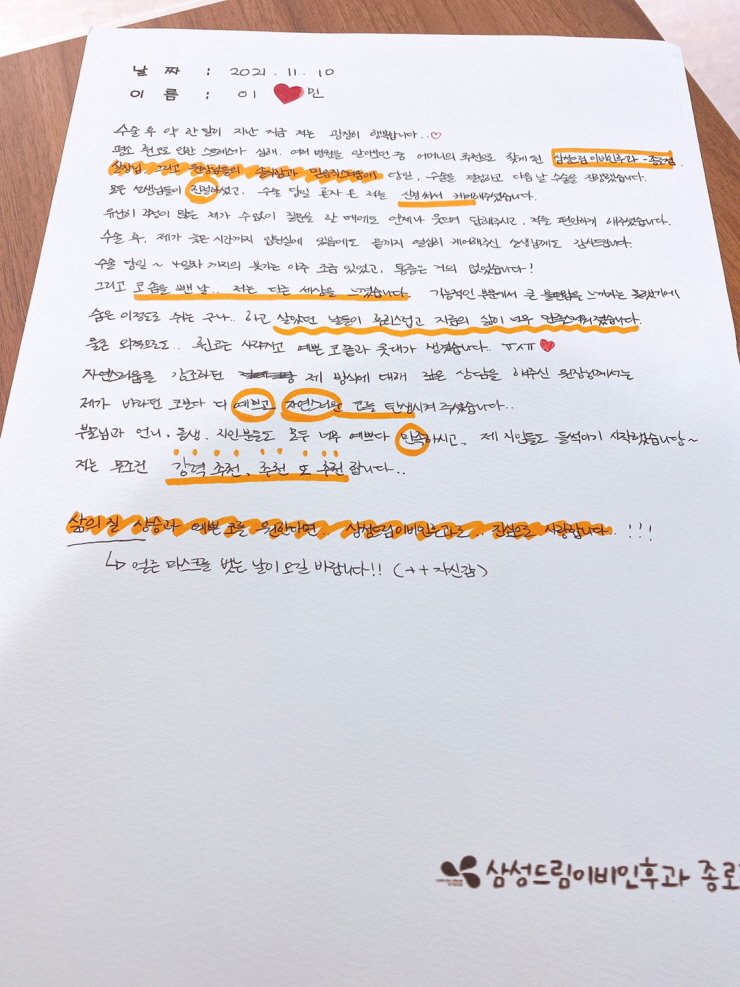 날 짜 : 2021. 11. 10
이 름 : 이 ♥ 민
수술 후 약 한 달이 지난 지금 저는 굉장히 행복합니다..♡
평소 휜코로 인한 스트레스가 심해, 여러 병원을 알아보던 중 어머니의 추천으로 찾게 된 삼성드림이비인후과-종로점.
실장님, 그리고 원장님들의 솔직함과 믿음직스러움에 당일, 수술을 결정하고 다음 날 수술을 진행했습니다.
모든 선생님들이 친절하셨고, 수술 당일 혼자 온 저를 신경써서 케어해주셨습니다.
유난히 걱정이 많은 제가 수없이 질문을 할 때에도 언제나 웃으며 답해주시고, 저를 편안하게 해주셨습니다.
수술 후, 제가 늦은 시간까지 입원실에 있음에도 끝까지 열심히 케어해주신 선생님께도 감사드립니다.
수술 당일 ~ 4일차 까지의 붓기는 아주 조금 있었고, 통증은 거의 없었습니다!
그리고 코 솜을 뺀 날.. 저는 다른 세상을 느꼈습니다. 기능적인 부분에서 큰 불편함을 느끼지는 못했기에
숨은 이정도로 쉬는 구나.. 하고 살았던 날들이 후회스럽고 지금의 삶이 너무 만족스러워졌습니다.
물론 외적으로도.. 휜코는 사라지고 예쁜 코끝과 콧대가 생겼습니다.. ㅠㅅㅠ ♥
자연스러움을 강조하던 제 방식에 대해 깊은 상담을 해주신 원장님께서는
제가 바라던 코보다 더 예쁘고 자연스러운 코를 탄생시켜 주셨습니다..
부모님과 언니, 동생, 지인분들도 모두 너무 예쁘다 만족하시고, 제 지인들도 들썩이기 시작했습니당~
저는 무조건 강력 추천, 추천 또 추천 합니다..
삶의 질 상승과 예쁜 코를 원한다면.. 삼성드림이비인후과로.. 진심으로 사랑합니다.. !!!
↳ 얼른 마스크를 벗는 날이 오길 바랍니다!! (++ 자신감)
삼성드림이비인후과 종로